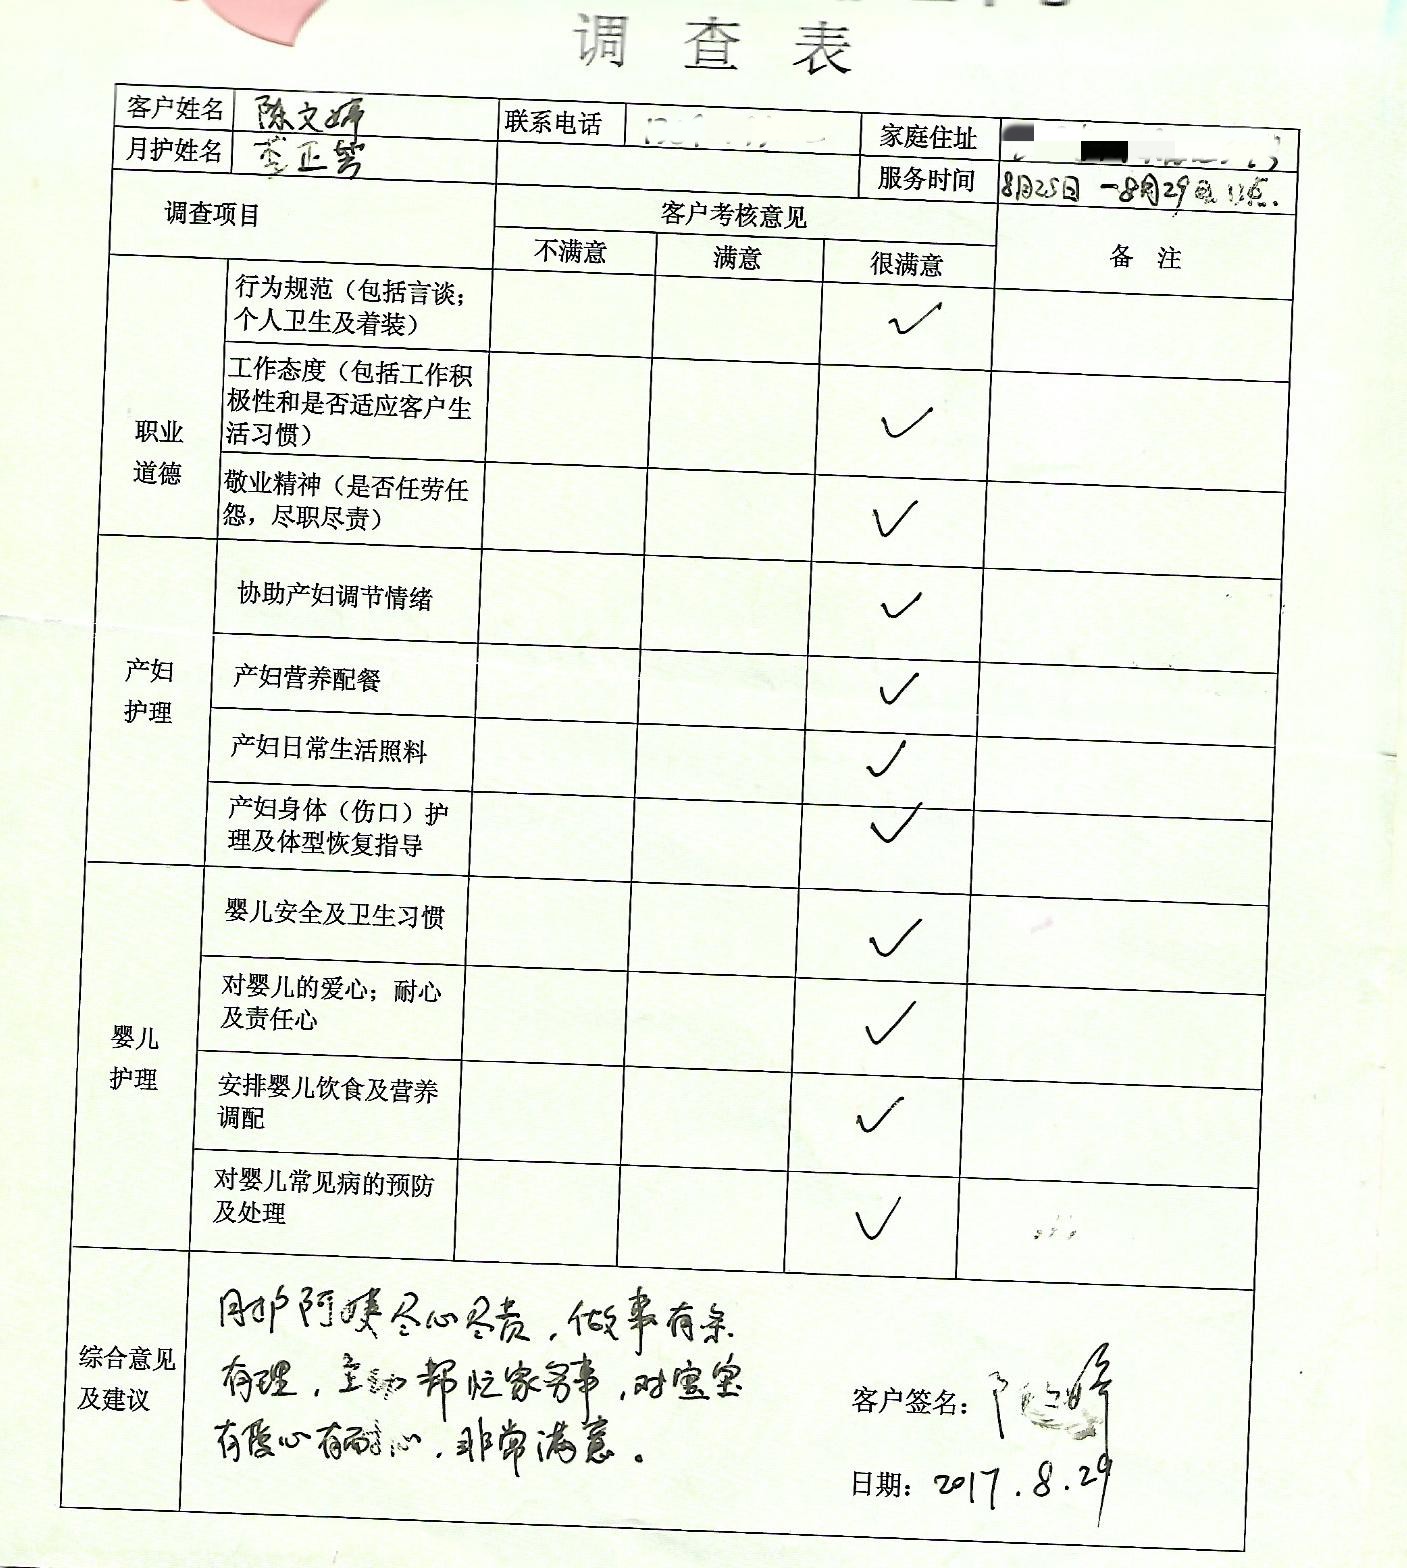 调 查 表
客户姓名 陈文婷 联系电话 家庭住址
月护姓名 李正 服务时间 8月25日-8月29日
调查项目 客户考核意见 备 注
不满意 满意 很满意
职业
道德
行为规范（包括言谈；
个人卫生及着装） ✓
工作态度（包括工作积
极性和是否适应客户生
活习惯） ✓
敬业精神（是否任劳任
怨，尽职尽责） ✓
产妇
护理
协助产妇调节情绪 ✓
产妇营养配餐 ✓
产妇日常生活照料 ✓
产妇身体（伤口）护
理及体型恢复指导 ✓
婴儿
护理
婴儿安全及卫生习惯 ✓
对婴儿的爱心；耐心
及责任心 ✓
安排婴儿饮食及营养
调配 ✓
对婴儿常见病的预防
及处理 ✓
综合意见
及建议
月护阿姨尽心尽责，做事有条
有理，主动帮忙家务事，对宝宝
有爱心有耐心，非常满意。
客户签名：陈文婷
日期：2017.8.29